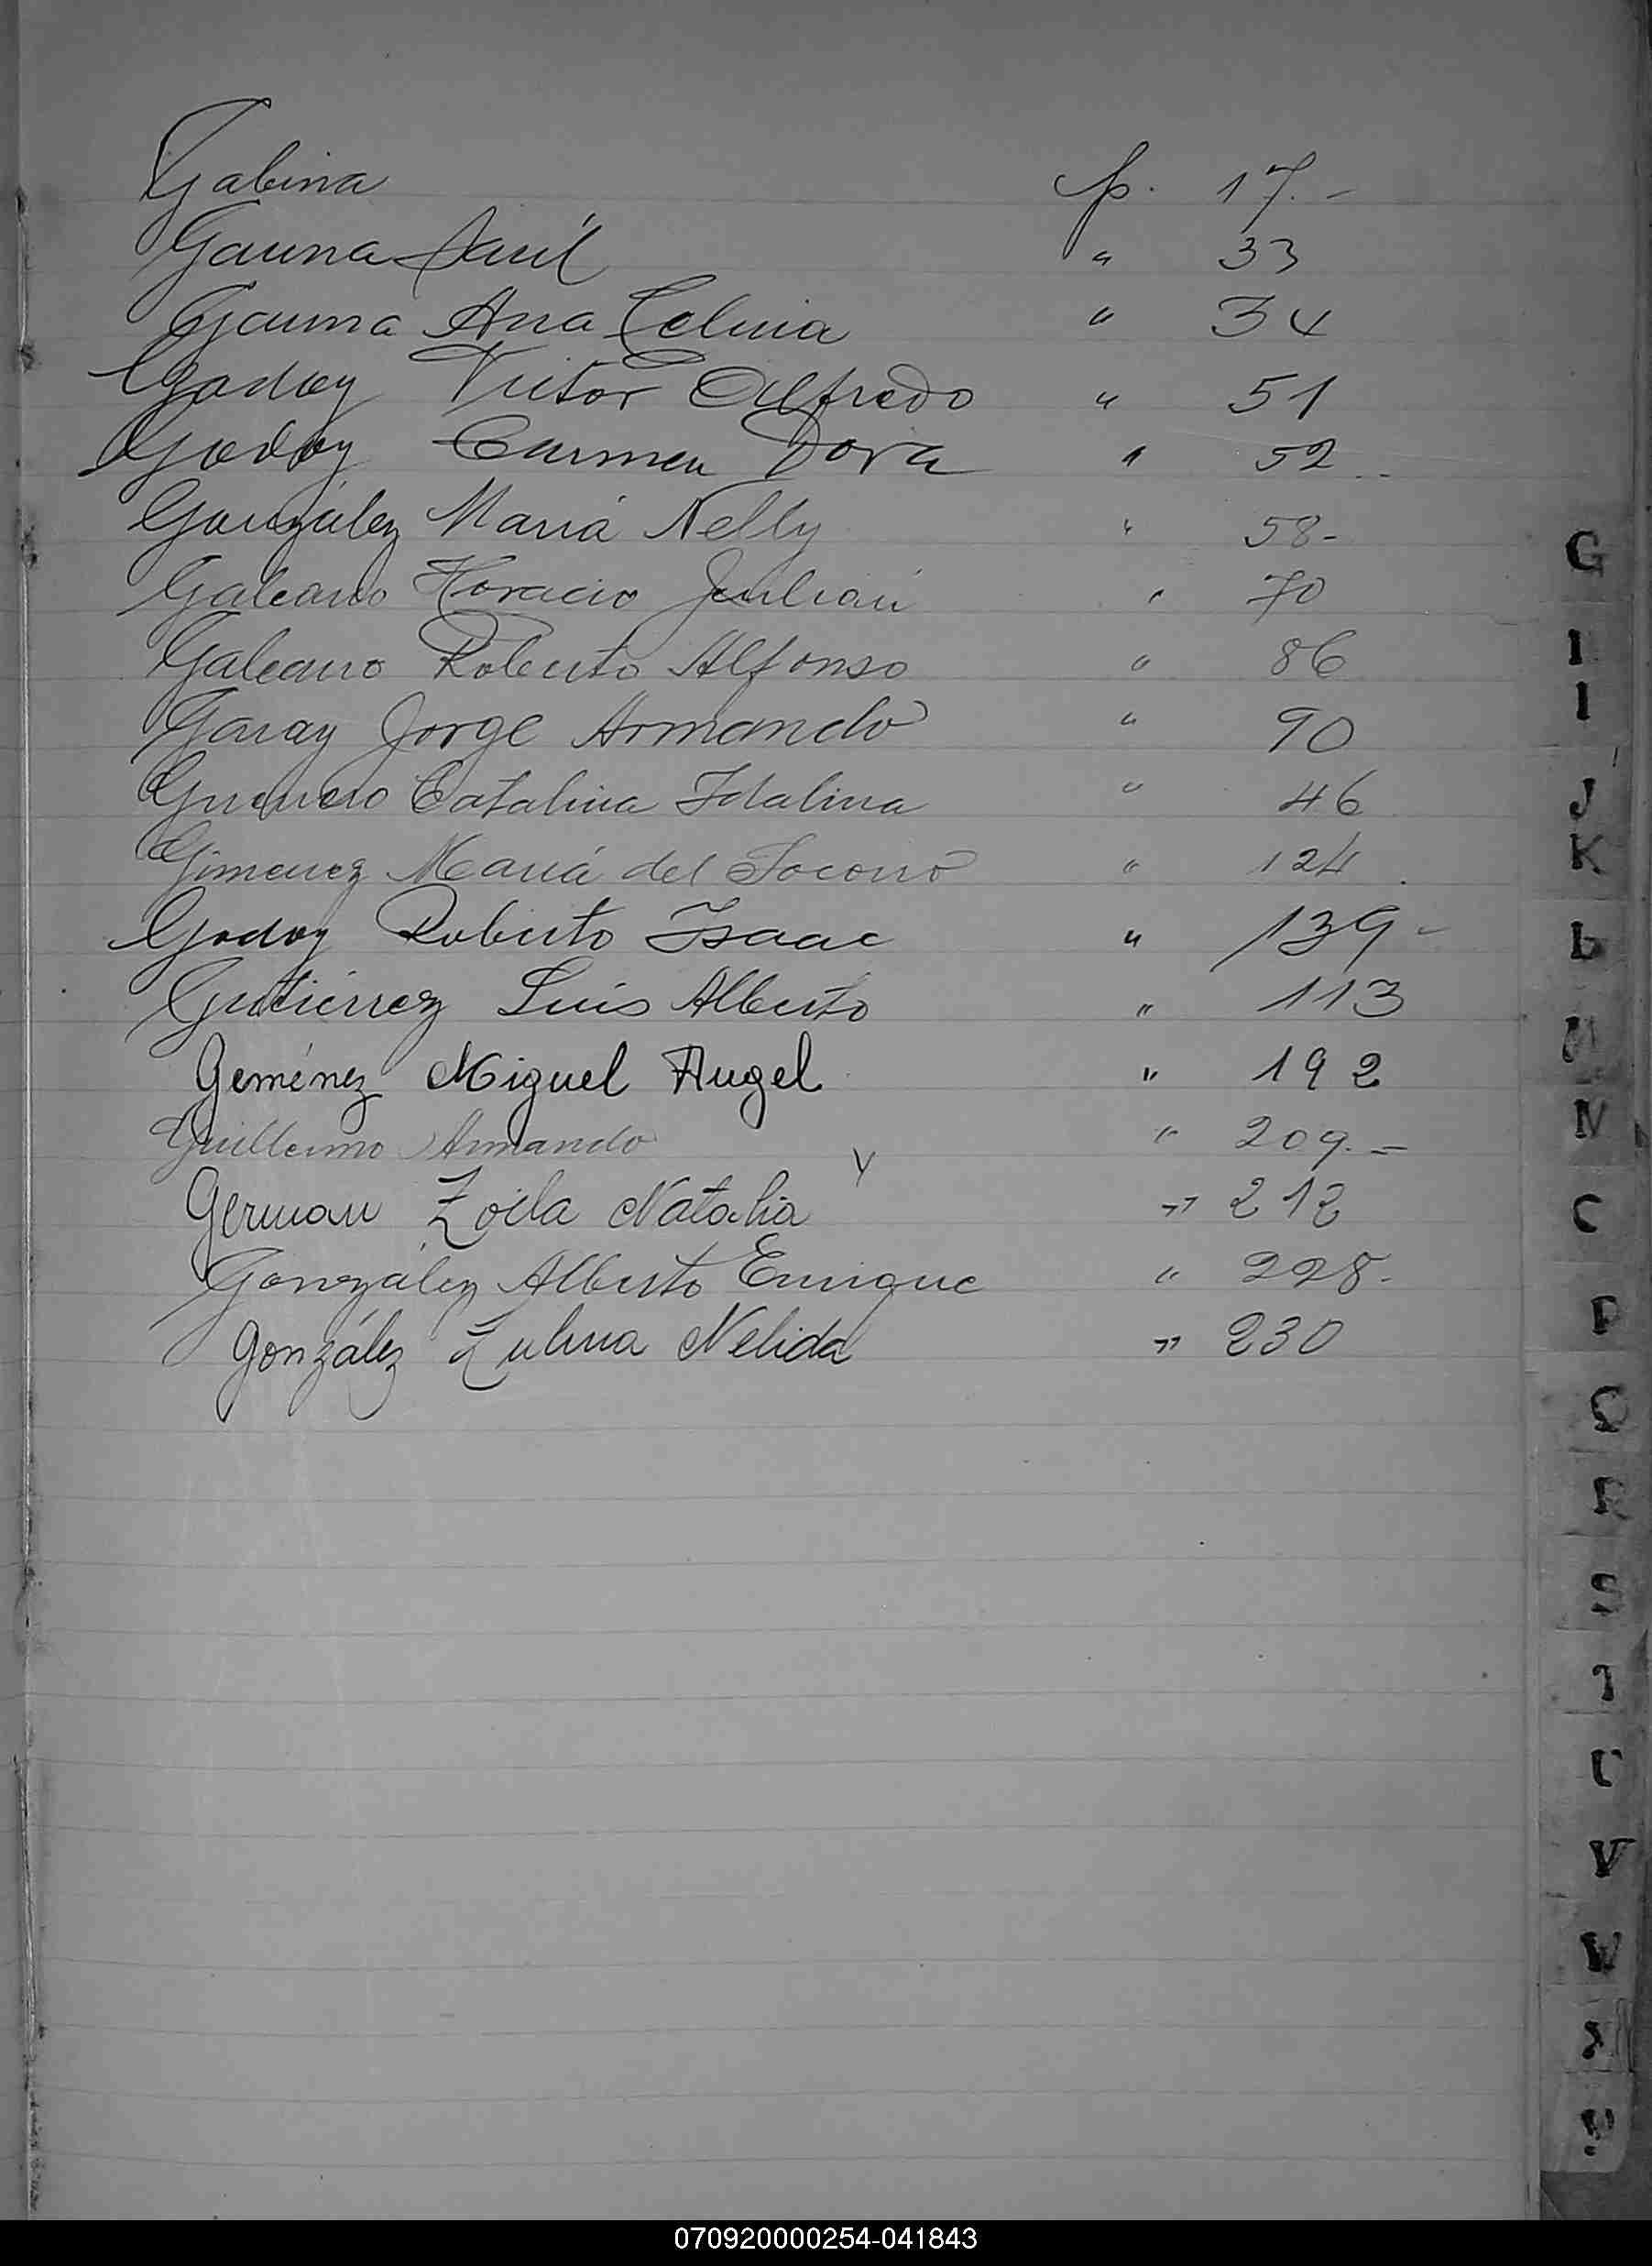 Gabina p. 17.-
Gauna Saúl " 33
Gauna Ana Celmia " 34
Godoy Victor Alfredo " 51
Godoy Carmen Dora " 52
González María Nelly " 58-
Galeano Horacio Julián " 70
Galeano Roberto Alfonso " 86
Garay Jorge Armando " 90
Guerrero Catalina Idalina " 46
Gimenez María del Socorro " 124
Godoy Roberto Isaac " 139-
Gutiérrez Luis Alberto " 113
Geménez Miguel Angel " 192
Guillermo Armando " 209.-
German Zoila Natalia " 212
González Alberto Enrique " 228-
González Zulma Nelida " 230
G
I
J
K
L
M
N
P
Q
R
S
V
W
070920000254-041843